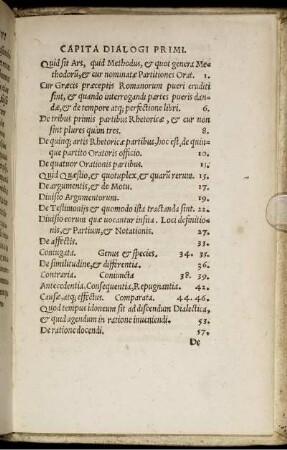 CAPITA DIALOGI PRIMI.
Quid sit Ars, quid Methodus, & quot genera Me-
thodorũ, & cur nominatæ Partitiones Orat. 1.
Cur Græcis præceptis Romanorum pueri erudiri
sint, & quando interrogandi partes pueris dan-
dæ, & de tempore atq; perfectione libri. 6.
De tribus primis partibus Rhetoricæ, & cur non
sint plures quim tres. 8.
De quinq; artis Rhetoricæ partibus, hoc est, de quin-
que partito Oratoris officio. 10.
De quatuor Orationis partibus. 11.
Quid Quæstio, & quotuplex, & quarũ rerum. 15.
De argumentis, & de Motu. 17.
Diuisio Argumentorum. 19.
De Testimonijs & quomodo ista tractanda sint. 22.
Diuisio eorum quæ uocantur insita. Loci definitio-
nis, & Partium, & Notationis. 27.
De affectis. 33.
Coniugata. Genus & species. 34. 35.
De similitudine, & differentia. 36.
Contraria. Coniuncta 38. 39.
Antecedentia. Consequentia. Repugnantia. 42.
Causæ, atq; effectus. Comparata. 44. 46.
Quod tempus idoneum sit ad discendam Dialecticã,
& quid agendum in ratione inueniendi. 53.
De ratione docendi. 57.
De